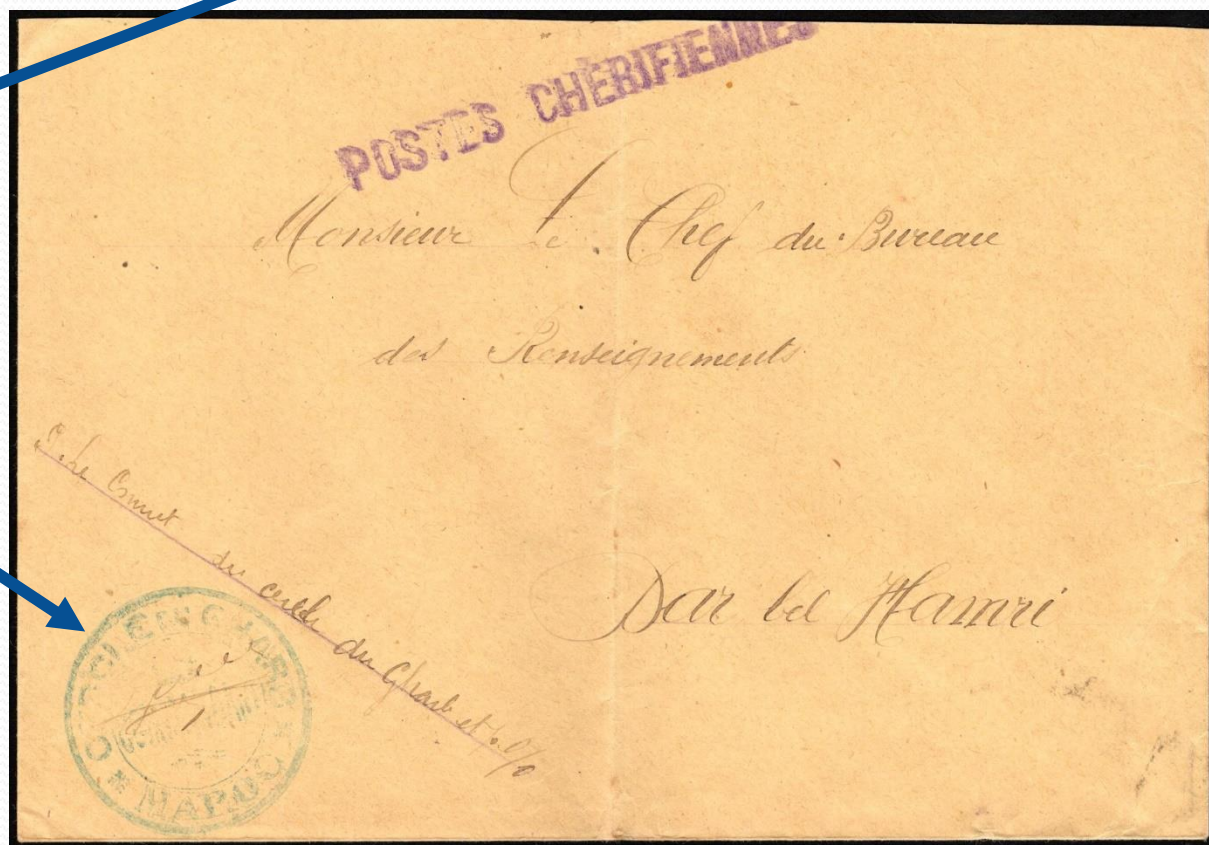 POSTES CHÉRIFIENNES
Monsieur Le Chef du Bureau
des Renseignements
Dar bel Hamri
du cercle du Gharb et
CERCLE DU GHARB
MAROC